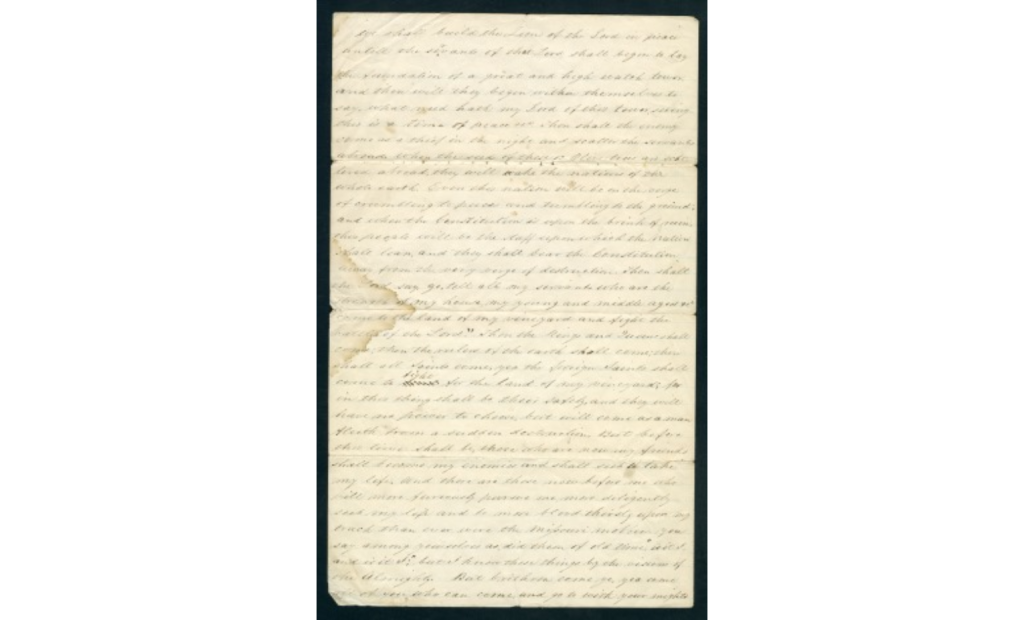 we shall build the Zion of the Lord in peace
untill the servants of that Lord shall begin to lay
the foundation of a great and high watch tower
and then will they begin within themselves to
say, what need hath my Lord of this tower, seeing
this is a time of peace &c. Then shall the enemy
come as a thief in the night and scatter the servants
abroad. When the seed of these 12 Olive trees are scat
tered abroad, they will wake the nations of the
whole earth. Even this nation will be on the verge
of crumbling to pieces and tumbling to the ground,
and when the Constitution is upon the brink of ruin
this people will be the staff upon which the nation
shall lean, and they shall bear the Constitution
away from the very verge of destruction. Then shall
the Lord say go, tell all my servants who are the
strength of my house, my young and middle aged &c
come to the land of my vineyard and fight the
battle of the Lord." Then the Kings and Queens shall
come; then the rulers of the earth shall come; then
shall all Saints come, yea the foreign Saints shall
come to fight for the land of my vineyard, for
in this thing shall be their safety and they will
have no power to choose but will come as a man
fleeth from a sudden destruction. But before
this time shall be, those who are now my friends
shall become my enemies and shall seek to take
my life; and there are those now before me who
will more furiously pursue me, more diligently
seek my life and be more blood thirsty upon my
track than ever were the Missouri mobbers. you
say among yourselves as did them of old time, is it I,
and is it I? but I know these things by the visions of
the Almighty. But brethren come ye, yea come
all of you who can come and go to with your mights